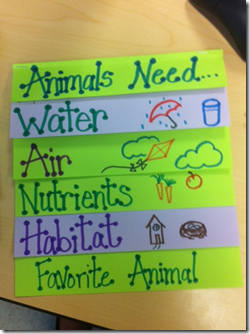 Animals Need...
Water
Air
Nutrients
Habitat
Favorite Animal